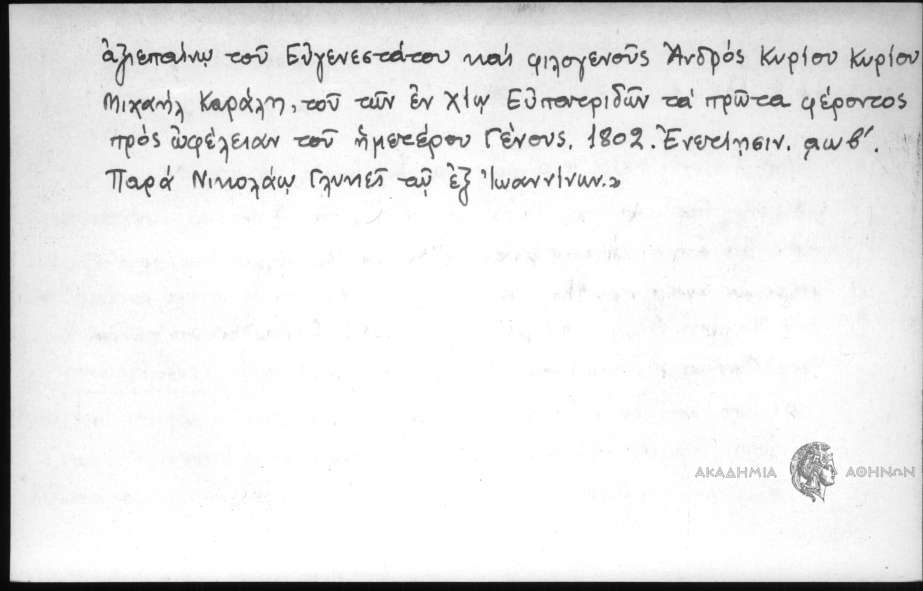 ἀξιεπαίνῳ τοῦ Εὐγενεστάτου καί φιλογενοῦς Ἀνδρός Κυρίου Κυρίου
Μιχαήλ Καράλη, τοῦ τῶν ἐν Χίῳ Εὐπατριδῶν τά πρῶτα φέροντος
πρός ὠφέλειαν τοῦ ἡμετέρου Γένους. 1802. Ἐνετίησιν. αωβ΄.
Παρά Νικολάῳ Γλυκεῖ τῷ ἐξ Ἰωαννίνων.»
ΑΚΑΔΗΜΙΑ ΑΘΗΝΩΝ